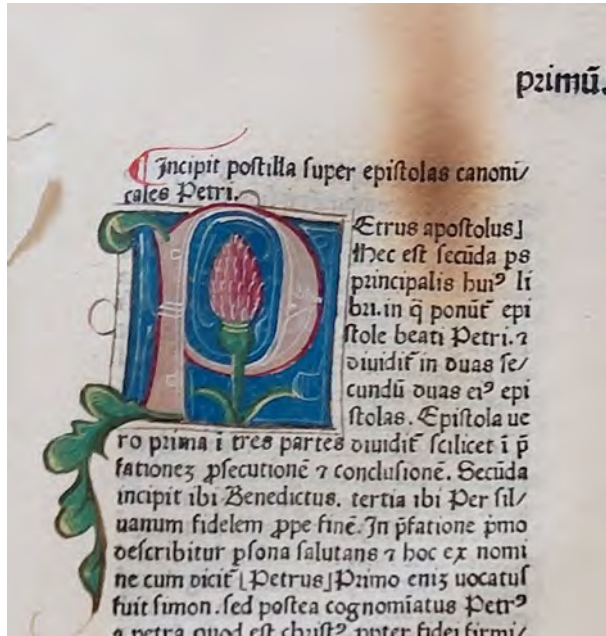 primū.
Incipit postilla super epistolas canoni/
cales Petri.
PEtrus apostolus]
Hec est secūda ps
principalis huiꝰ li
bri. in q̄ ponūt᷑ epi
stole beati Petri. ⁊
diuidit᷑ in duas se/
cundū duas eiꝰ epi
stolas. Epistola ue
ro prima ī tres partes diuidit᷑ scilicet ī p̄
fationeꝫ ꝓsecutionē ⁊ conclusionē. Secūda
incipit ibi Benedictus. tertia ibi Per sil/
uanum fidelem ꝓpe finē. In p̄fatione p̄mo
describitur psona salutans ⁊ hoc ex nomi
ne cum dicit᷑ [Petrus] Primo eniꝫ uocatus
fuit simon. sed postea cognomīatus Petrꝰ
a petra quod est christꝰ ꝓpter fidei firmi/